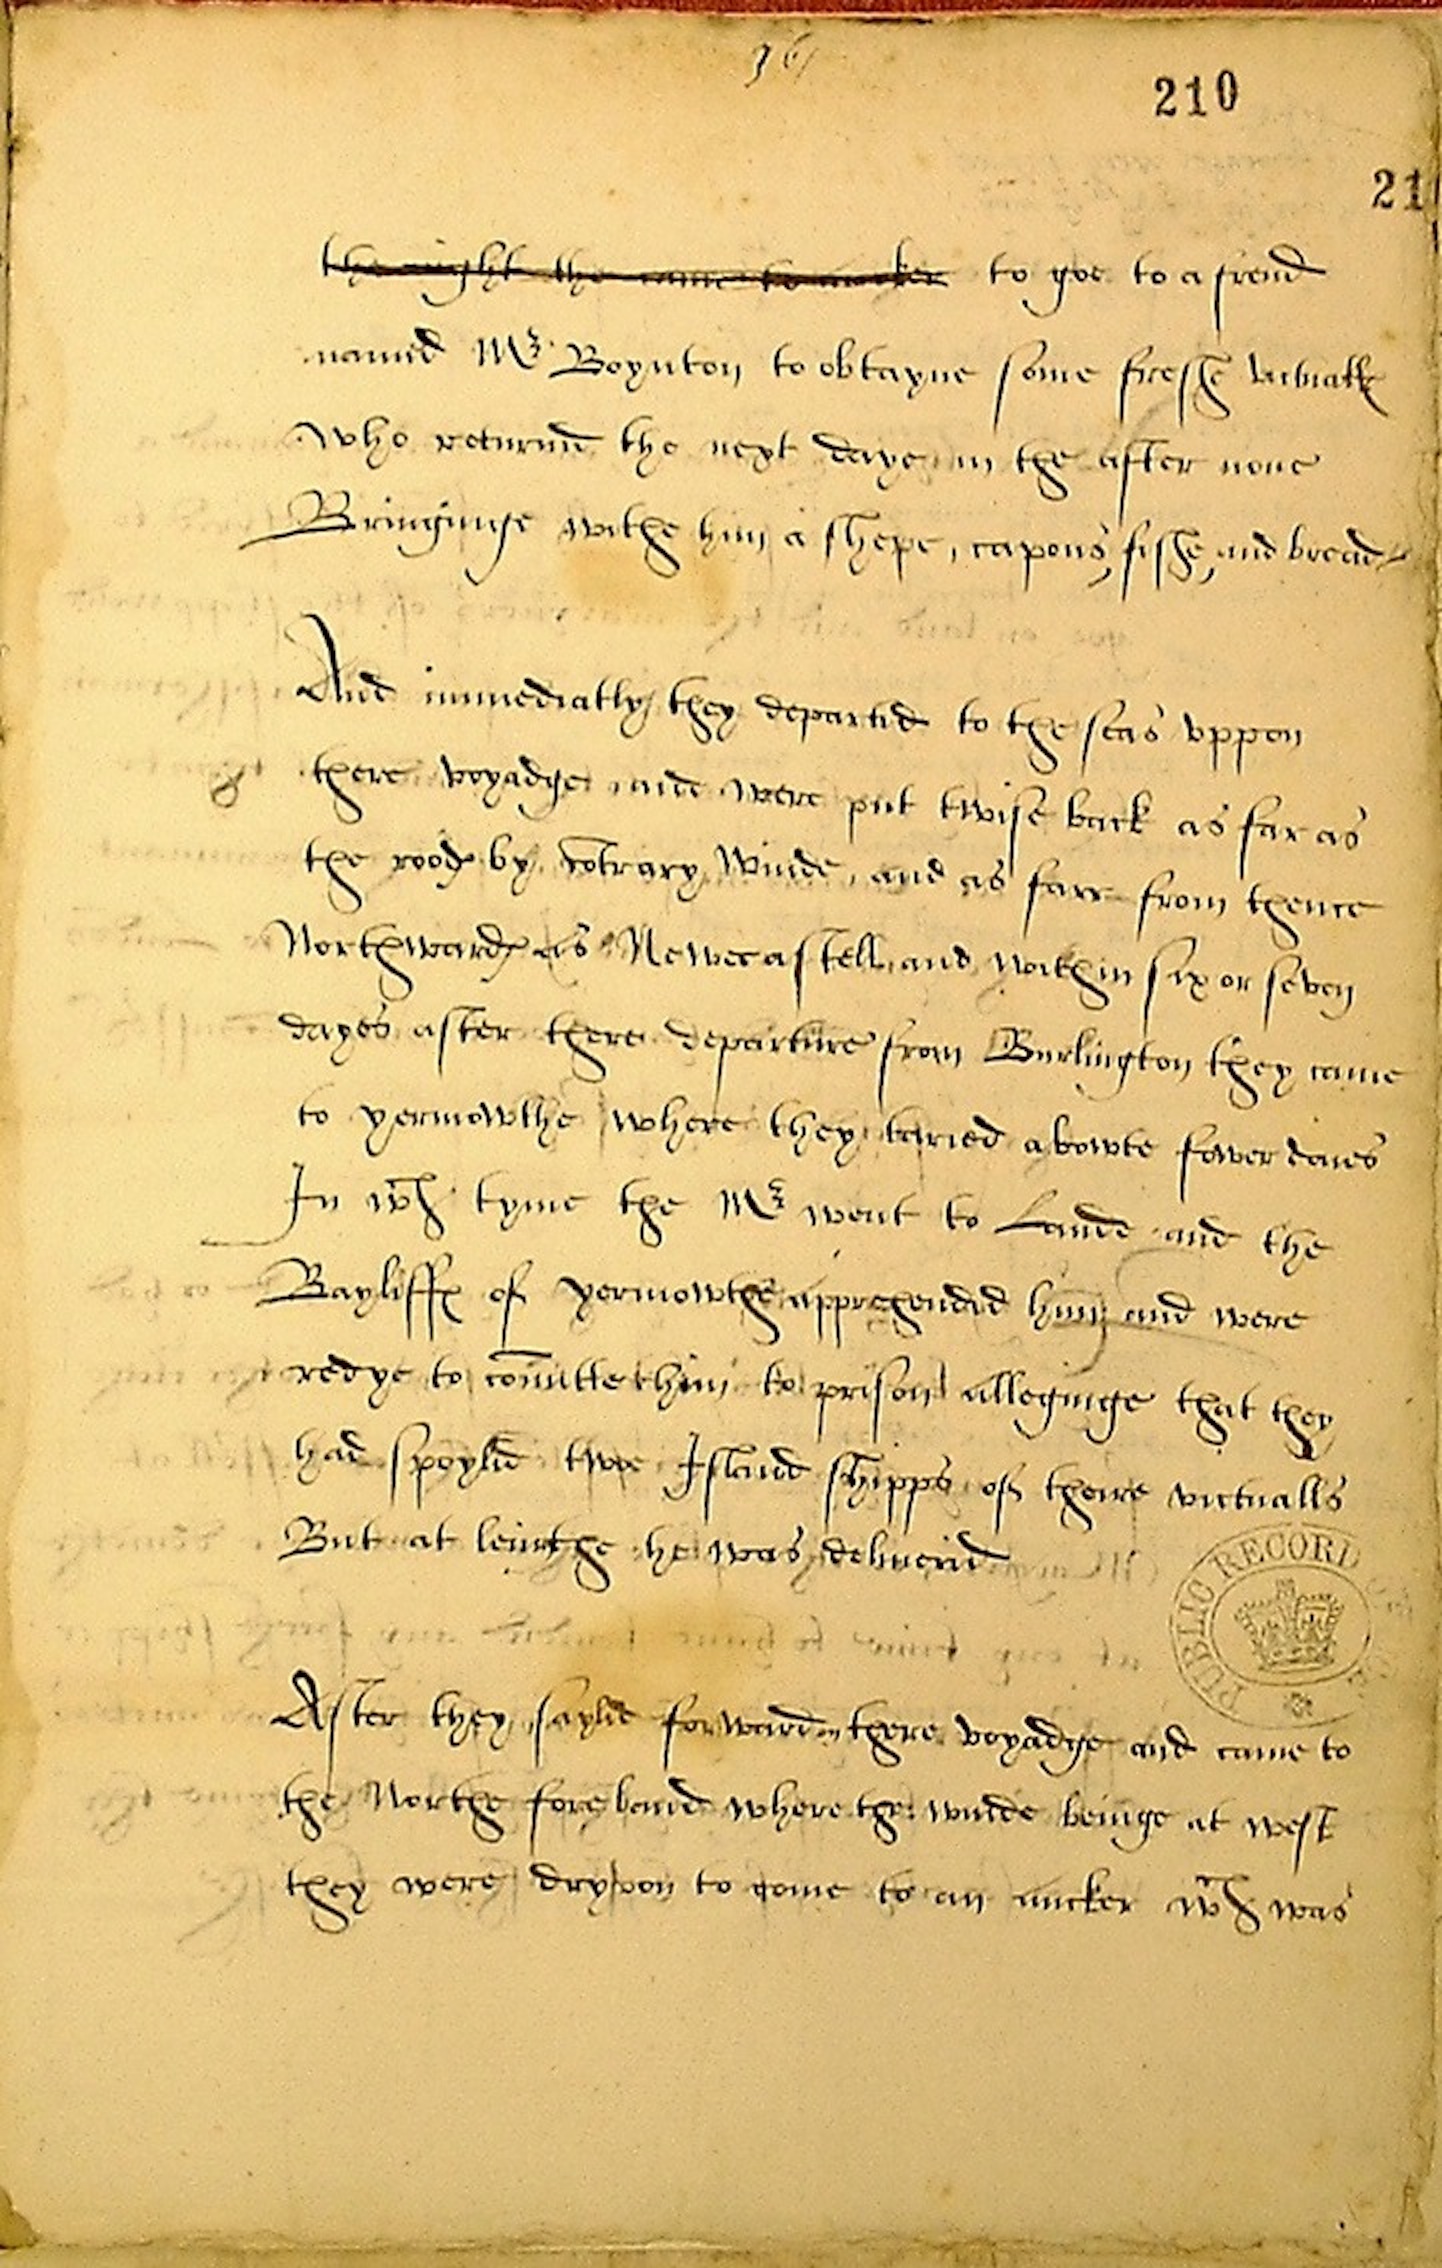 36
210
21
the night the came to ancker to goe to a frend
named Mr Boynton to obtayne some freshe victualls
who returned the next daye in the after none
Bringinge withe him a shepe, capons, fishe, and bread
And immediatly they departed to the seas vppon
there voyadge and were put twise back as far as
the roode by contrary winde, and as farr from thence
Northwardes as Newecastell, and within six or seven
dayes after there departure from Burlington they came
to yermowthe where they taried abowte fower daies
In wch tyme the Mr went to Lande and the
Bayliffes of yermowthe apprehended him and were
redye to comitte him to prison alleginge that they
had spoyled twoe Island shipps of theire victualls
But at leingthe he was deliuered
After they sayled forward on there voyadge and came to
the Northe foreland where the winde beinge at west
they were dryven to come to an ancker wch was
PUBLIC RECORD OFFICE